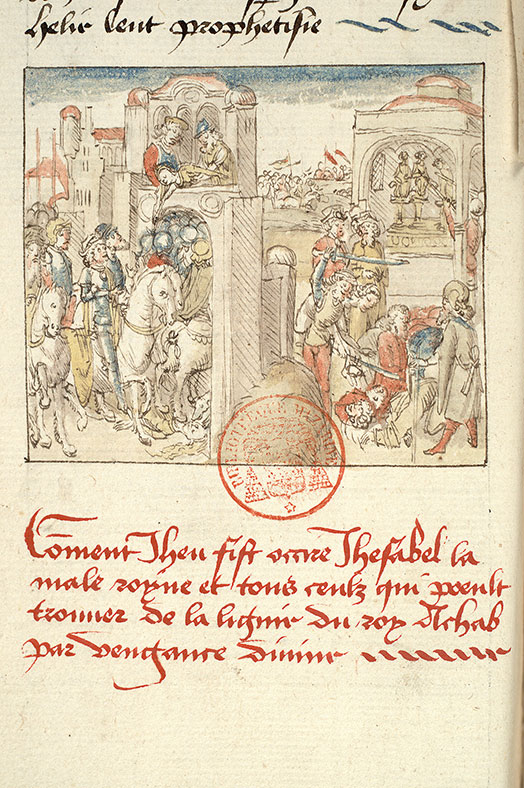 helie leut prophetisie
Coment Jheu fist occire Jhesabel la
male royne et tous ceulx qui poeult
trouver de la lignie du roy Achab
par vengance divine